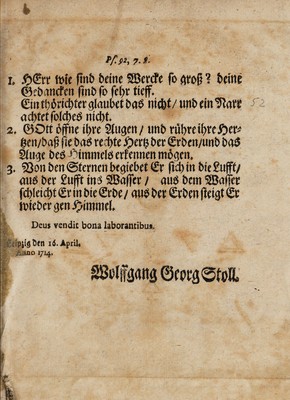 Ps. 92, 7. 8.
1. HErr wie sind deine Wercke so groß? deine
Gedancken sind so sehr tieff.
Ein thörichter glaubet das nicht/ und ein Narr
achtet solches nicht.
2. GOtt öffne ihre Augen/ und rühre ihre Her-
tzen/ daß sie das rechte Hertz der Erden/ und das
Auge des Himmels erkennen mögen.
3. Von den Sternen begiebet Er sich in die Lufft/
aus der Lufft ins Wasser/ aus dem Wasser
schleicht Er in die Erde/ aus der Erden steigt Er
wieder gen Himmel.
Deus vendit bona laborantibus.
Leipzig den 16. April.
Anno 1714.
Wolffgang Georg Stoll.
52